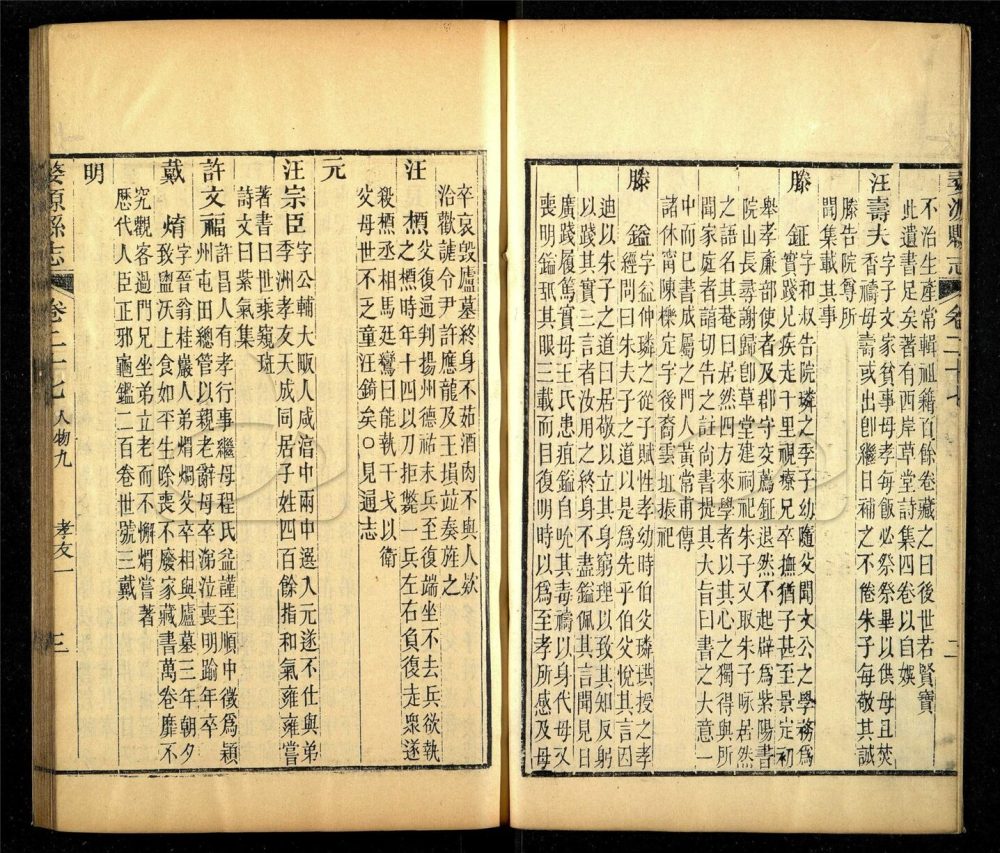 婺源縣志
卷二十七
二
不治生產常輯祖籍百餘卷藏之曰後世若賢寶
此遺書足矣著有西岸草堂詩集四卷以自娛
汪壽夫字子文家貧事母孝每飯必祭祭畢以供母且莢
香禱母壽或出卽繼日補之不倦朱子每敬其誠
滕告院尊所
聞集載其事
滕　鉦字和叔告院璘之季子幼隨父聞文公之學務爲
實踐兄疾走千里視療兄卒撫猶子甚至景定初
舉孝廉部使者及郡守交薦鉦退然不起辟爲紫陽書
院山長尋謝歸卽草堂建祠祀朱子又取朱子咏居然
之語名其菴曰居然四方來學者以其心之獨得與所
聞家庭者諳切告之註尙書提其大旨曰書之大意一
中而巳書成屬之門人黃常甫傳
諸休甯陳櫟定宇後裔雲址振祀
滕　鎰字益仲璘之從子賦性孝幼時伯父璘珙授之孝
經問曰朱夫子之道以是爲先乎伯父悅其言因
迪以朱子之道曰居敬以立其身窮理以致其知反躬
以踐其實三言者汝用之終身不盡鎰佩其言聞見日
廣踐履篤實母王氏患疽鎰自吮其毒禱以身代母又
喪明鎰舐其眼三載而目復明時以爲至孝所感及母
卒哀毀廬墓終身不茹酒肉不與人欵
治歡謔令尹許應龍及王塤竝奏旌之
汪　㯹父復通判揚州德祐末兵至復端坐不去兵欲執
之㯹時年十四以刀拒斃一兵左右負復走衆遂
殺㯹丞相馬廷鸞曰能執干戈以衛
父母世不乏童汪錡矣○見通志
元
汪宗臣字公輔大畈人咸湻中兩中選入元遂不仕與弟
季洲孝友天成同居子姓四百餘指和氣雍雍嘗
著書曰世乘窺斑
詩文曰紫氣集
許文福許昌人有孝行事繼母程氏益謹至順中徵爲穎
州屯田總管以親老辭母卒涕泣喪明踰年卒
戴　焴字晉翁桂巖人弟熠燜父卒相與廬墓三年朝夕
致盥沃上食如平生除喪不廢家藏書萬卷靡不
究觀客過門兄坐弟立老而不懈熠嘗著
歷代人臣正邪龜鑑二百卷世號三戴
明
婺源縣志
卷二十七
人物九
孝友一
三